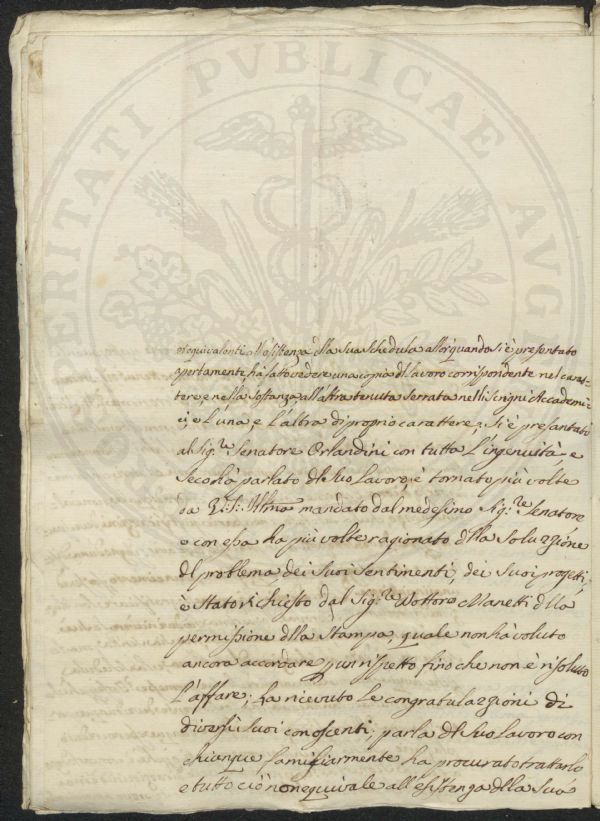 PROSPERITATI PVBLICAE AVGENDAE
equivalenti all'esistenza dlla sua Schedula allorquando si è presentato
apertamente, ha fatto vedere una copia dl lavoro corrispondente nel carat-
tere e nella sostanza all'altra tenuta serrata nelli Scrigni Accademi-
ci, e l'una e l'altra di proprio carattere; Si è presentato
al Sig.re Senatore Orlandini con tutta l'ingenuità, e
seco ha parlato dl suo lavoro, è tornato più volte
da V.S. Illma mandato dal medesimo Sig.re Senatore
e con essa ha più volte ragionato dlla soluzzione
dl problema, dei suoi sentimenti, dei suoi progetti,
è stato richiesto dal Sig.re Dottore Manetti dlla
permissione dlla stampa, quale non hà voluto
ancora accordare p un rispetto fino che non è risoluto
l'affare; ha ricevuto le congratulazzioni di
diversi suoi conoscenti, parla dl suo lavoro con
chiunque familiarmente ha procurato trattarlo
e tutto ciò non equivale all'esistenza dlla sua